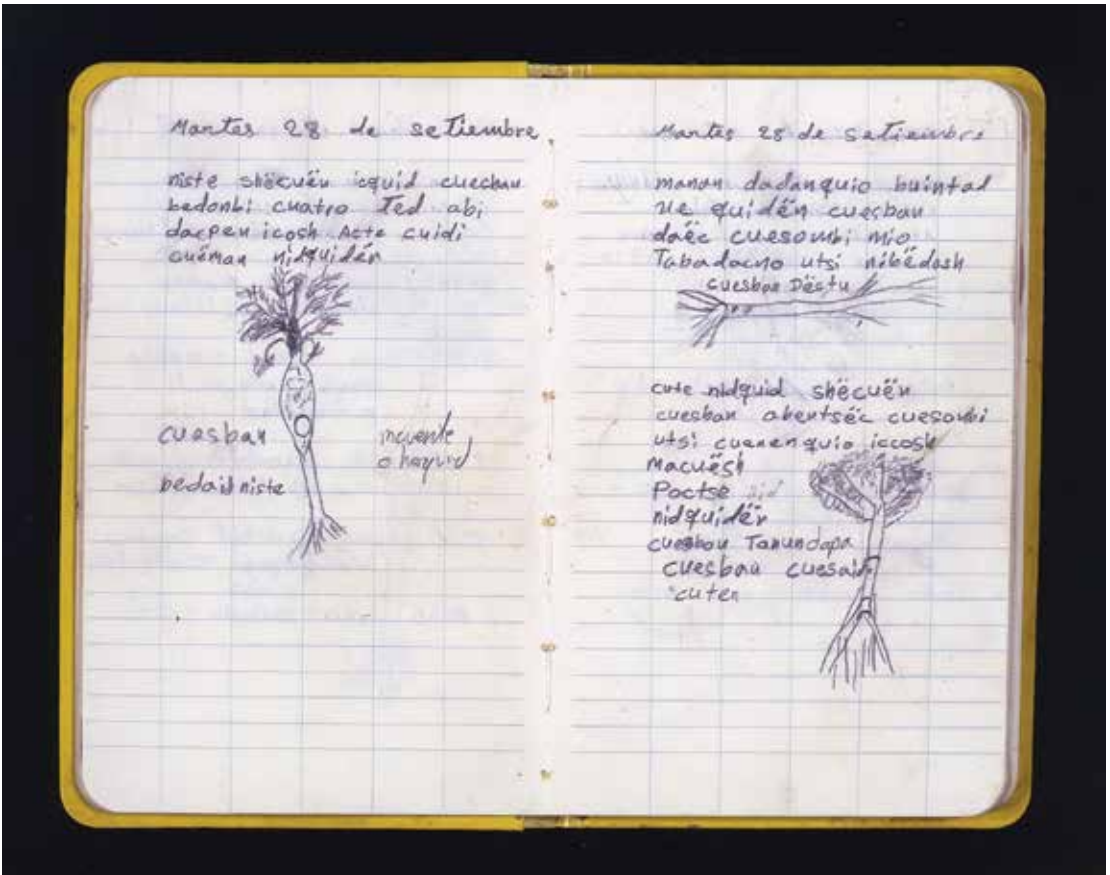 Martes 28 de setiembre
niste shëcuën icquid cuesban
bedonbi cuatro Ted abi
dacpen icosh Acte cuidi
cuëman nidquidën
cuesban
bedaid niste
Martes 28 de setiembre
manan dadanquio buintad
ne quidën cuesban
daëc cuesombi mio
Tabadacno utsi nibëdosh
cuesban Dëctu
cute nidquid shëcuën
cuesban abentsëc cuesombi
utsi cuenenquio iccosh
Macuësh
Poctse
nidquidën
cuesban Tanundapa
cuesban cuesaid
cuten